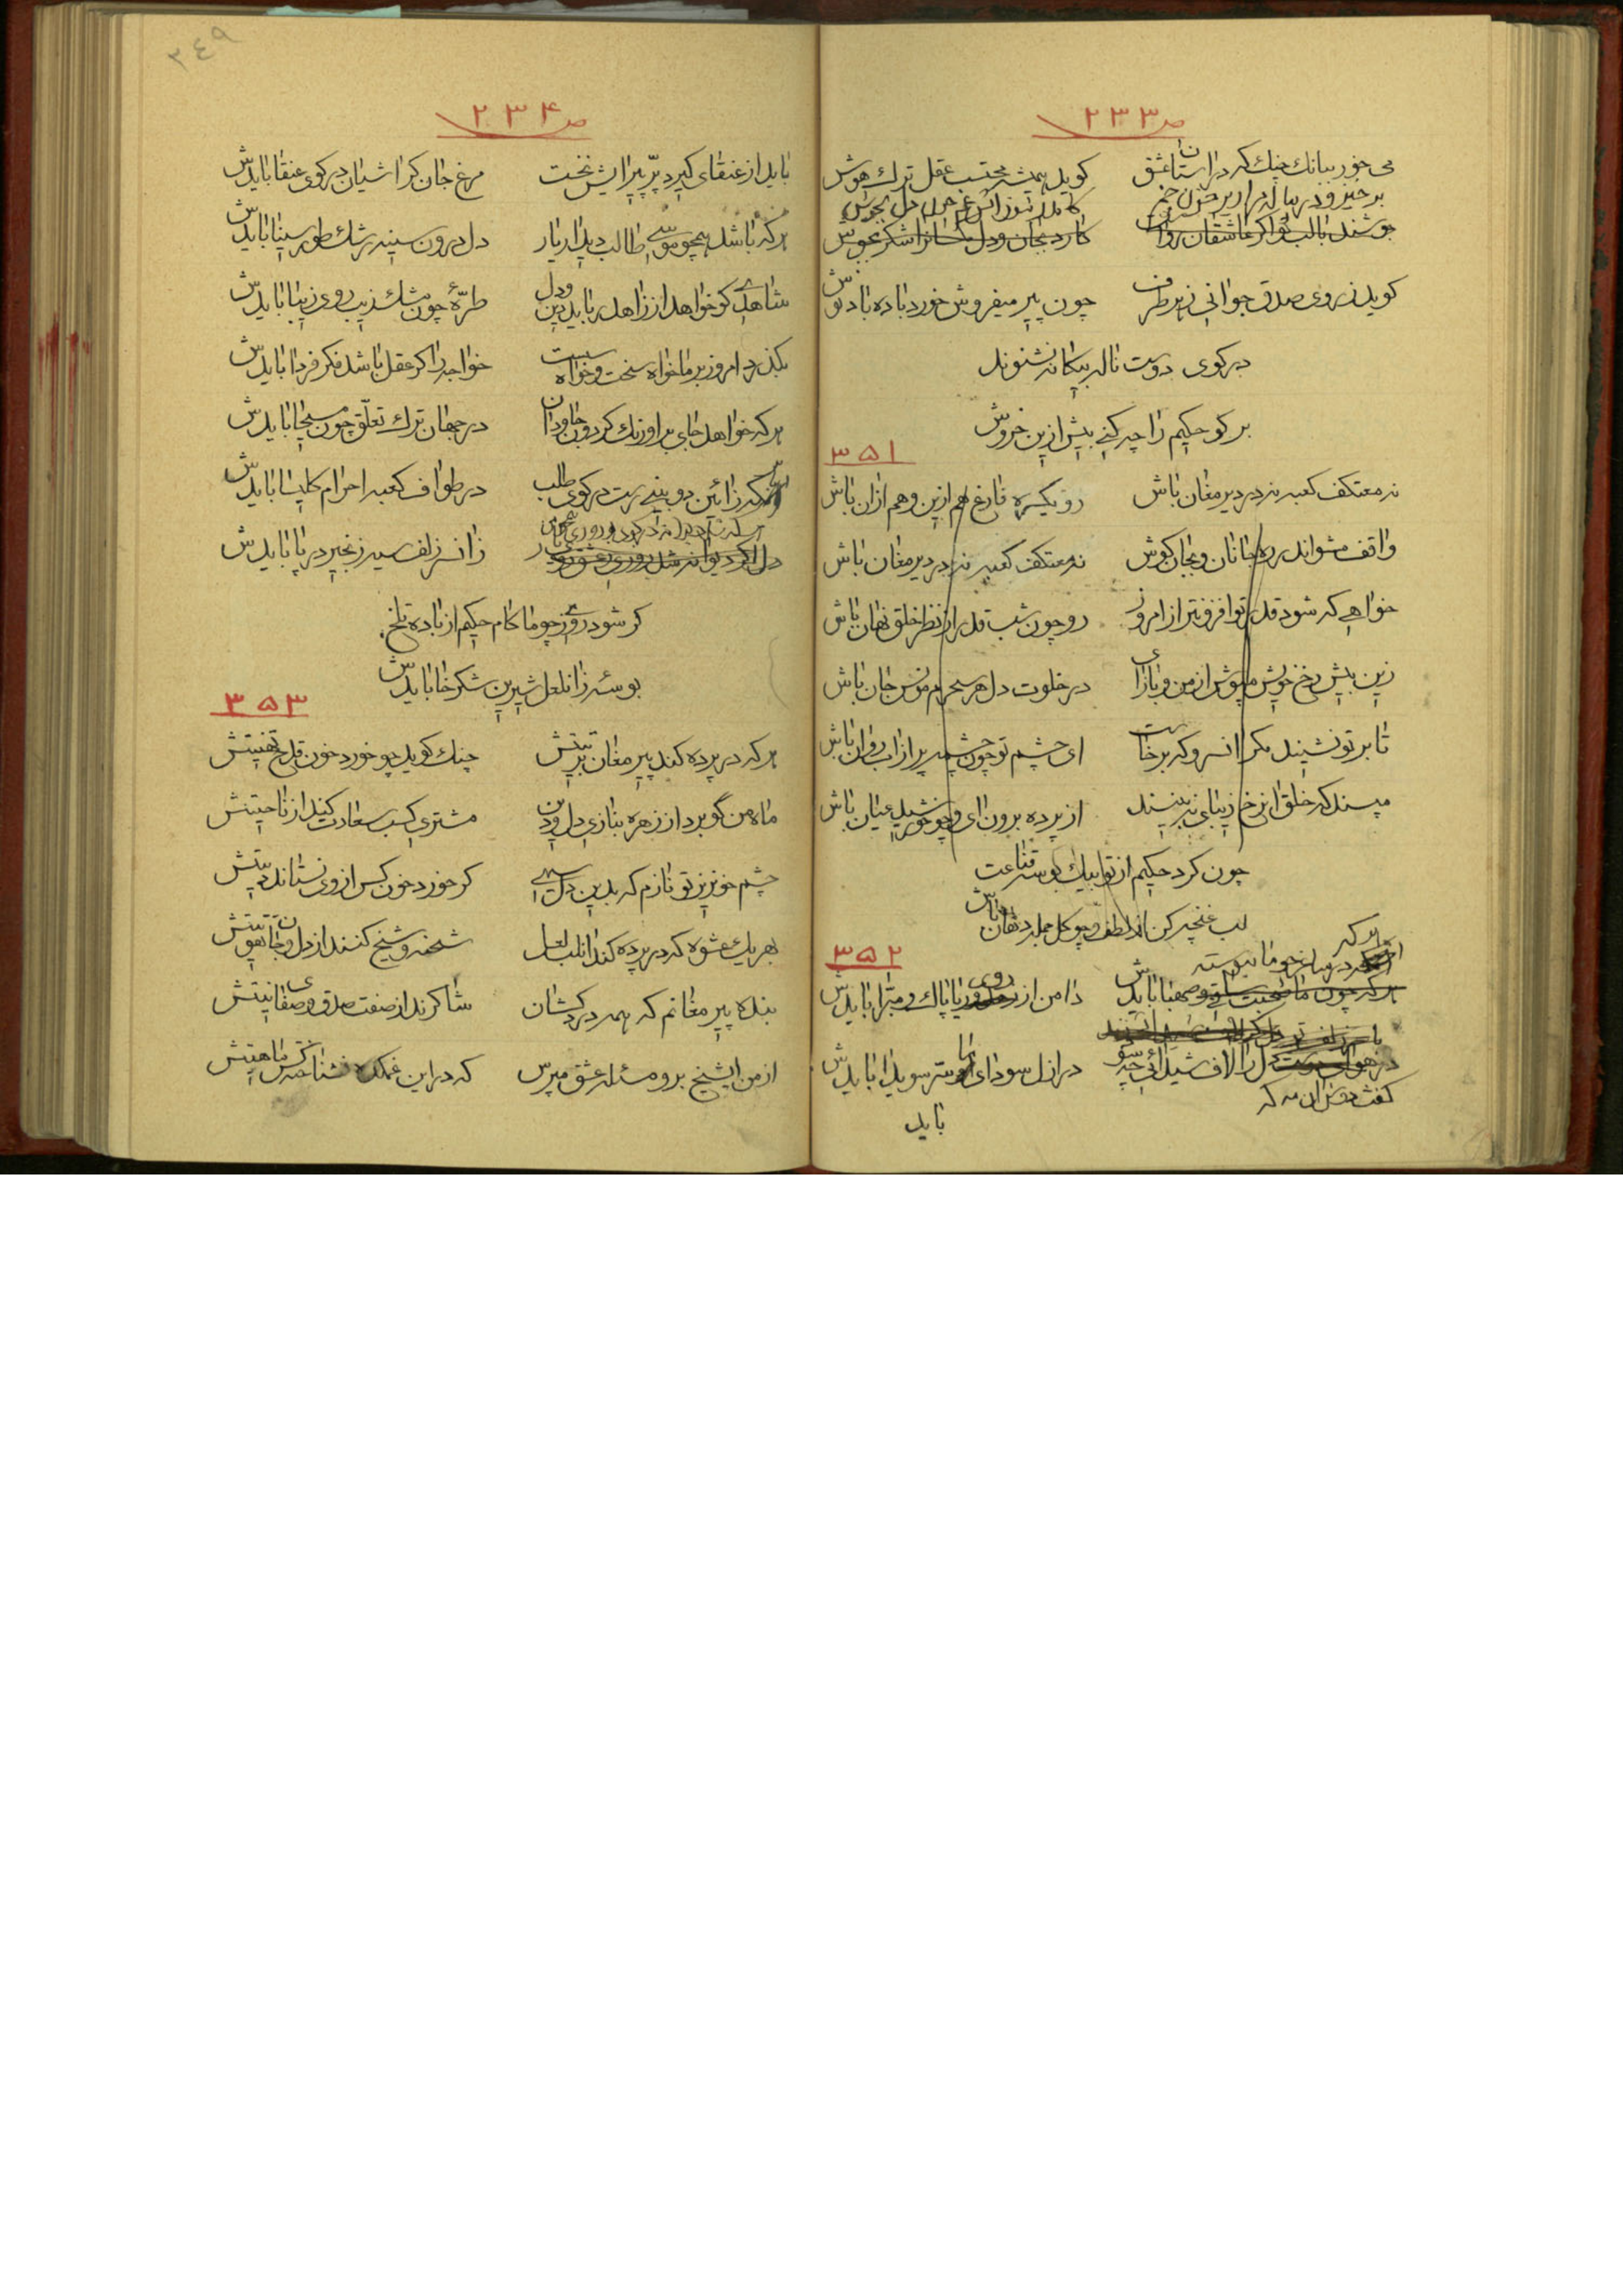 ص ۲۳۳
می خور ببانك چنك كه در استان عشق
كوید همیشه محتسب عقل ترك هوش
برخیز و در پیاله
جوشند بالب تو اكر عاشقان رواست
كوید ز روی صدق جوانی ز هر طرف
چون پیر میفروش خورد باده باد نوش
در كوی دوست ناله بیكانه نشنوند
بر كو حكیم را چه كنی بیش ازین خروش
۳۵۱
نه معتكف كعبه نه در دیر مغان باش
رو یكسره فارغ هم ازین و هم ازان باش
واقف مشو اندر ره جانان و بجان كوش
نه معتكف كعبه نه در دیر مغان باش
خواهی كه شود قدر تو افزونتر از امروز
رو چون شب قدر از نظر خلق نهان باش
زین بیش رخ خویش مپوش از من و بازای
در خلوت دل هر سحرم مونس جان باش
تا بر تو نشیند مكر انسرو كه برخاست
ای چشم تو چون چشمه پر از اب روان باش
مپسند كه خلق انرخ زیبای نه بینند
از پرده برون ای و چو خورشید عیان باش
چون كرد حكیم از تو بیك بوسه قناعت
لب غنچه كن از لطف و چو كل جمله دهان باش
۳۵۲
هر كه
هر كه چون ما صحبت صهبا بایدش
دامن از روی ریا پاك و مبرا بایدش
دل را لاف شیدائی چه سود
در ازل سودای او سر سویدا بایدش
كفت دوش ان مه كه
باید
۲٤۹
ص ۲۳۴
باید از عنقای كیرد پر پیرایش نخست
مرغ جان كراشیان در كوی عنقا بایدش
هر كه باشد همچو موسی طالب دیدار یار
دل درون سینه رشك طور سینا بایدش
شاهدی كو خواهد از زاهد رباید دین و دل
طرهٔ چون مشك زیب روی زیبا بایدش
بكذرد امروز بر ما خواه سخت و خواه سست
خواجه را كر عقل باشد فكر فردا بایدش
هر كه خواهد جای بر اورنك كردون جاودان
در جهان ترك تعلق چون مسیحا بایدش
انكه زائین دو بینی رست در كوی طلب
در طواف كعبه احرام كلیسا بایدش
دل اكر دیوانه شد
زانسر زلف سیه زنجیر در پا بایدش
كر شود روزی چو ما كام حكیم از باده تلخ
بوسهٔ زانلعل شیرین شكرخا بایدش
۳۵۳
هر كه در پرده كند پیر مغان تربیتش
چنك كوید چو خورد خون قدح تهنیتش
ماه من گو برد از زهره ببازی دل و دین
مشتری كسب سعادت كند از ناحیتش
چشم خونریز تو نازم كه بدین دل سیهی
كر خورد خون كس از وی نستاند دیتش
بهر یك عشوه كه در پرده كند انلب لعل
شحنه و شیخ كنند از دل و جان تهنیتش
بنده پیر مغانم كه همه درد كشان
شاكرند از صفت صدق و صفای نیتش
از من ایشیخ برو مسئله عشق مپرس
كه در این غمكده نشناخته كس ماهیتش